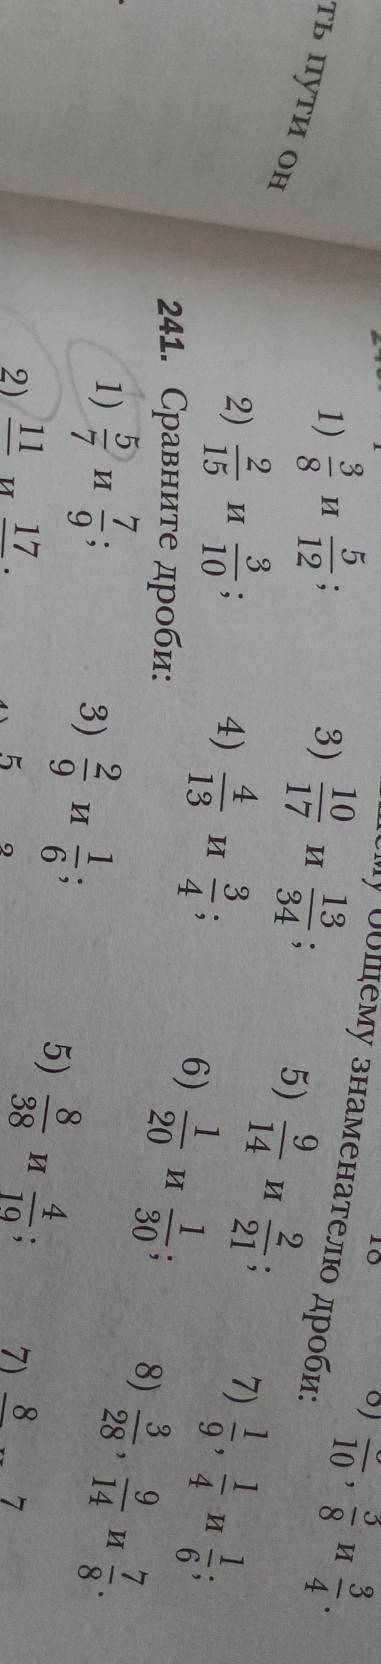 ть пути он
общему знаменателю дроби:
1) 3/8 и 5/12; 3) 10/17 и 13/34; 5) 9/14 и 2/21; 7) 1/9, 1/4 и 1/6;
2) 2/15 и 3/10; 4) 4/13 и 3/4; 6) 1/20 и 1/30; 8) 3/28, 9/14 и 7/8.
241. Сравните дроби:
1) 5/7 и 7/9; 3) 2/9 и 1/6; 5) 8/38 и 4/19; 7) 8
2) 11 и 17